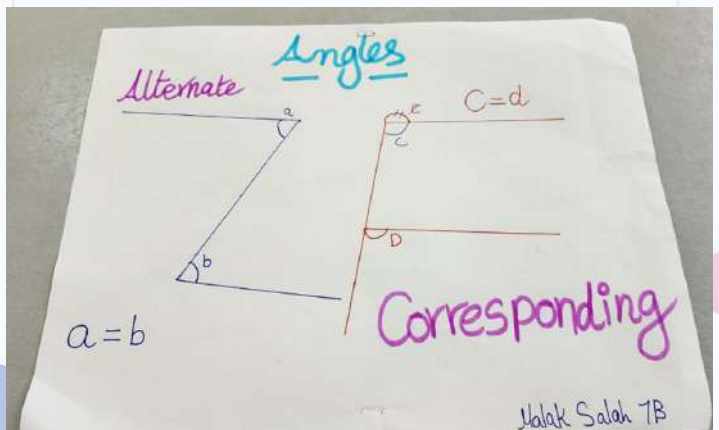 Angles
Alternate
a
b
a = b
e
C = d
C
D
Corresponding
Malak Salah 7B